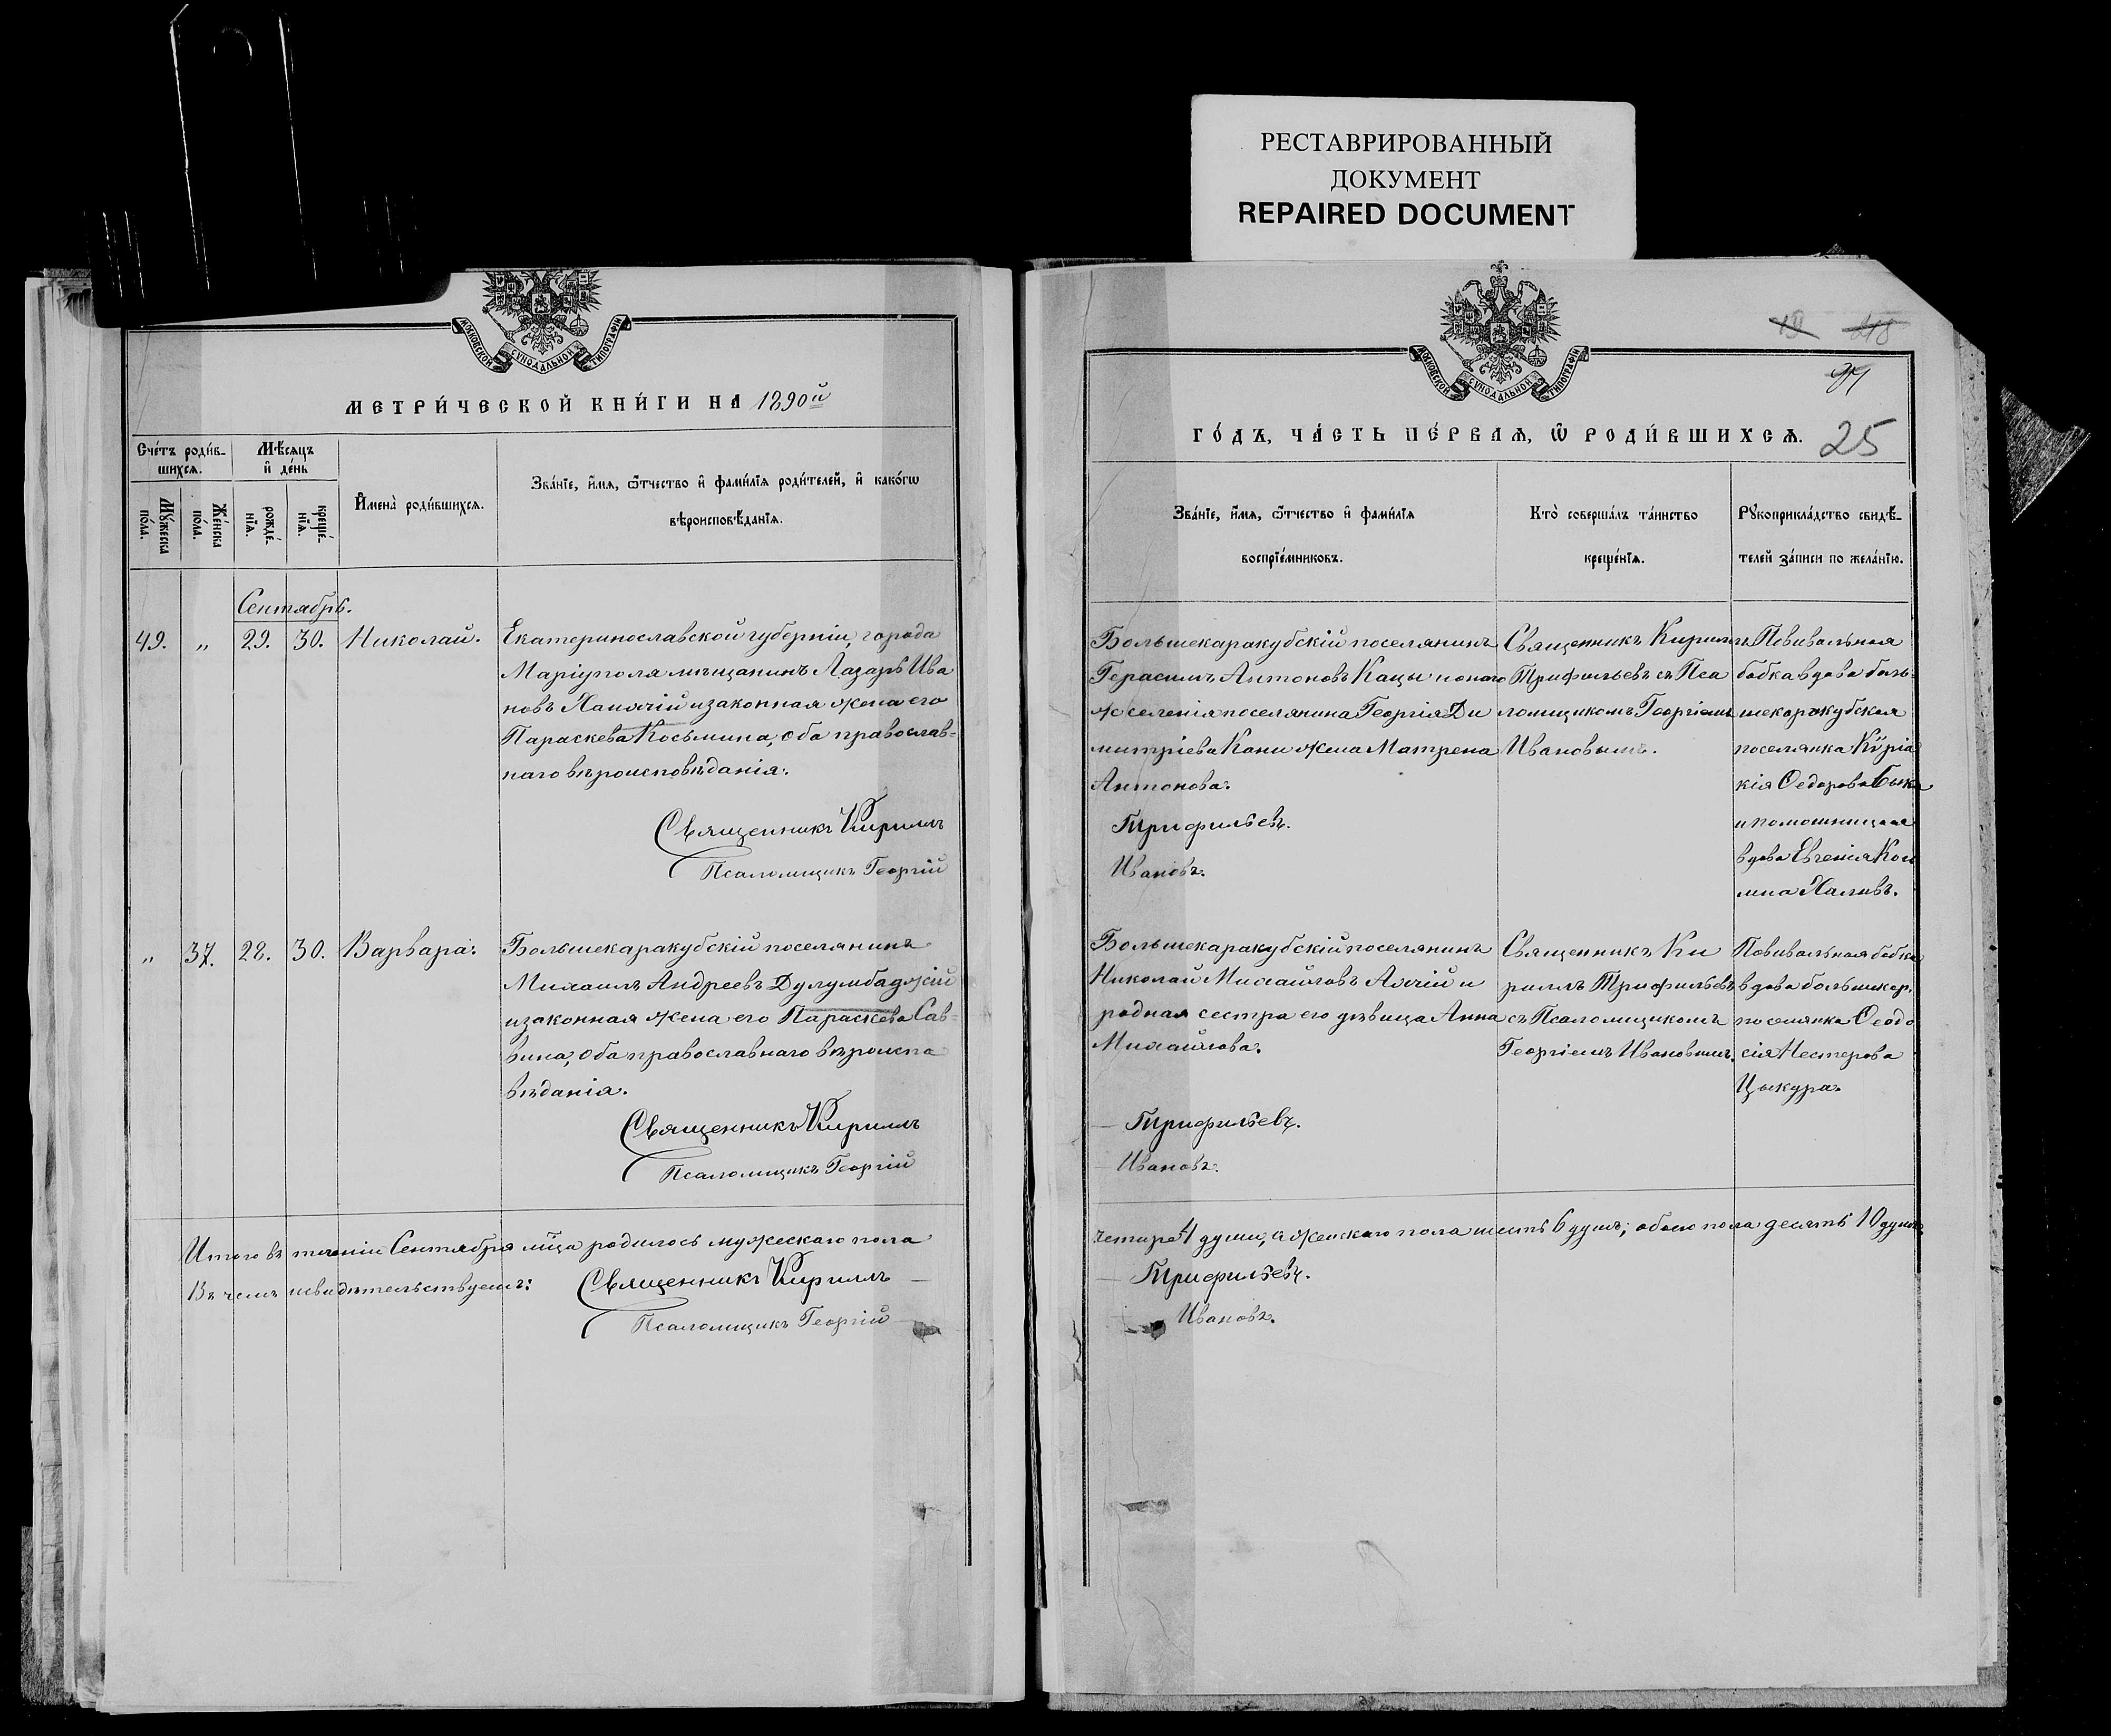 РЕСТАВРИРОВАННЫЙ
ДОКУМЕНТ
REPAIRED DOCUMENT
МОСКОВСКОЙ СѴНОДАЛЬНОЙ ТИПОГРАФІИ
МЕТРИ́ЧЕСКОЙ КНИ́ГИ НА 1890й
Сче́тъ роди́в-
шихсѧ.
Мѣ́сѧцъ
и҆ де́нь
Мꙋ́жеска
по́ла.
Же́нска
по́ла.
рожде́-
нїѧ.
креще́-
нїѧ.
И҆мена̀ роди́вшихсѧ.
Зва́нїе, и҆́мѧ, ѻ҆́тчество и҆ фами́лїѧ роди́телей, и҆ како́гѡ
вѣроисповѣ́данїѧ.
Сентябрь.
49. „ 29. 30. Николай.
Екатеринославской губерніи, города
Маріуполя мѣщанинъ Лазарь Ива
новъ Хапачій и законная жена его
Параскева Косьмина, оба православ-
наго вѣроисповѣданія.
Священникъ Кириллъ
Псаломщикъ Георгій
„ 37. 28. 30. Варвара.
Большекаракубскій поселянинъ
Михаилъ Андреевъ Дулумбаджій
и законная жена его Параскева Сав-
вина, оба православнаго вѣроиспо
вѣданія.
Священникъ Кириллъ
Псаломщикъ Георгій
Итого въ теченіи Сентября мѣца родилось мужескаго пола
В чемъ и свидѣтельствуемъ: Священникъ Кириллъ
Псаломщикъ Георгій
МОСКОВСКОЙ СѴНОДАЛЬНОЙ ТИПОГРАФІИ
ГО́ДЪ, ЧА́СТЬ ПЕ́РВАѦ, Ѡ҆ РОДИ́ВШИХСѦ. 25
Зва́нїе, и҆́мѧ, ѻ҆́тчество и҆ фами́лїѧ
воспрїе́мниковъ.
Кто̀ соверша́лъ та́инство
креще́нїѧ.
Рꙋкоприкла́дство свидѣ́-
телей за́писи по жела́нїю.
Большекаракубскій поселянинъ
Герасимъ Антоновъ Кацы и онаго
же селенія поселянина Георгія Ди
митріева Кани жена Матрена
Антонова.
Трифильевъ.
Ивановъ.
Священникъ Кириллъ
Трифильевъ съ Пса
ломщикомъ Георгіемъ
Ивановымъ.
Повивальная
бабка вдова боль-
шекаракубская
поселянка Кѵріа
кія Ѳедорова
и помощница ея
вдова Евгенія
Халивъ.
Большекаракубскій поселянинъ
Николай Михайловъ Ахчій и
родная сестра его дѣвица Анна
Михайлова.
Трифильевъ.
Ивановъ.
Священникъ Ки
риллъ Трифильевъ
съ Псаломщикомъ
Георгіемъ Ивановымъ.
Повивальная бабка
вдова большекар.
поселянка Ѳеодо
сія Нестерова
Цыкура.
четыре 4 души, а женскаго пола шесть 6 душъ; обоего пола десять 10 душъ.
Трифильевъ.
Ивановъ.